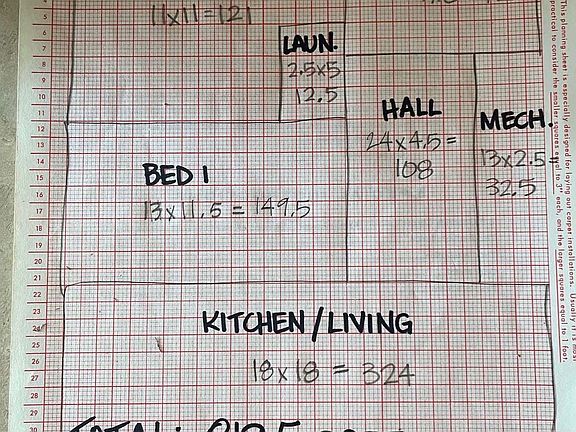 11x11=121
LAUN.
2.5x5
12.5
HALL
24x4.5=
108
MECH.
13x2.5=
32.5
BED 1
13x11.5=149.5
KITCHEN/LIVING
18x18=324
TOTAL:
This planning sheet is especially designed for laying out carpet installations. Usually it is most
practical to consider the smaller squares equal to 3" each, and the larger squares equal to 1 foot.
4
5
6
7
8
9
10
11
12
13
14
15
16
17
18
19
20
21
22
23
24
25
26
27
28
29
30